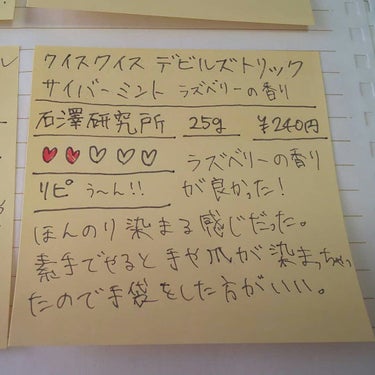 クイスクイス デビルズトリック
サイバーミント ラズベリーの香り
石澤研究所 25g ¥240円
♥♥♡♡♡ ラズベリーの香り
リピ う〜ん!! が良かった!
ほんのり染まる感じだった。
素手でやると手や爪が染まっちゃっ
たので手袋をした方がいい。